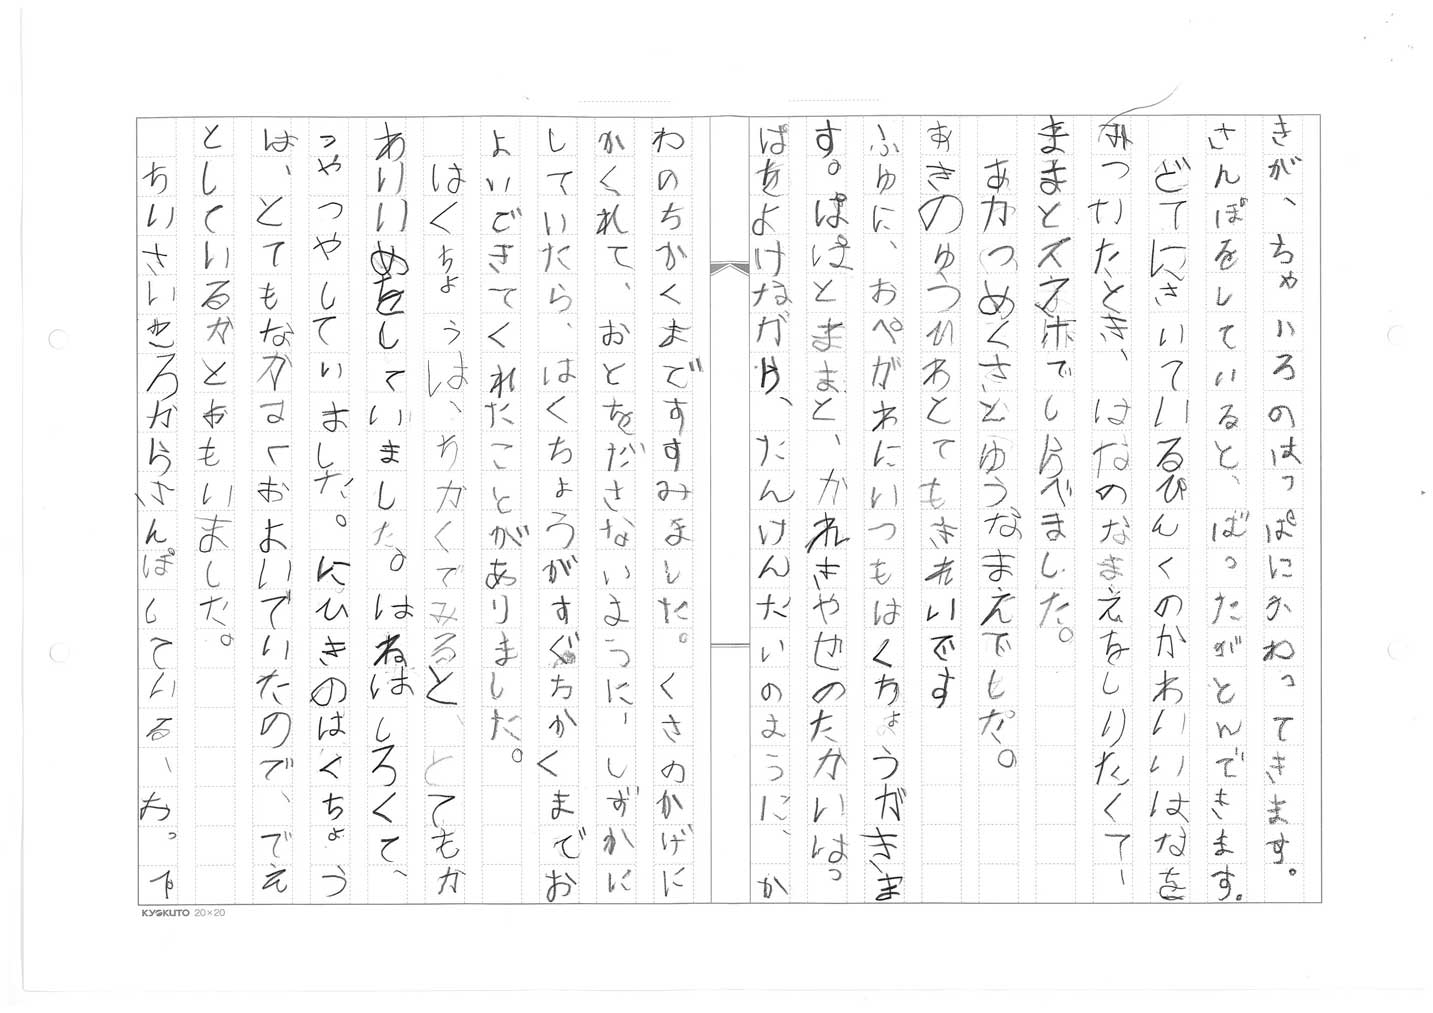 きが、ちゃいろのはっぱにかわってきます。
さんぽをしていると、ばったがとんできます。
どてにさいているぴんくのかわいいはなを
みつけたとき、はなのなまえをしりたくて、
ままとスマホでしらべました。
あかつめくさとゆうなまえでした。
あきのゆうひわとてもきれいです
ふゆに、おペがわにいつもはくちょうがきま
す。ぱぱとままと、かれきやせのたかいはっ
ぱをよけながら、たんけんたいのように、か
わのちかくまですすみました。くさのかげに
かくれて、おとをださないように、しずかに
していたら、はくちょうがすぐちかくまでお
よいできてくれたことがありました。
はくちょうは、ちかくでみると、とてもか
わいいめをしていました。はねはしろくて、
つやつやしていました。にひきのはくちょう
は、とてもなかよくおよいでいたので、でえ
としているかとおもいました。
ちいさいころからさんぽしている、わっか
KYOKUTO 20×20